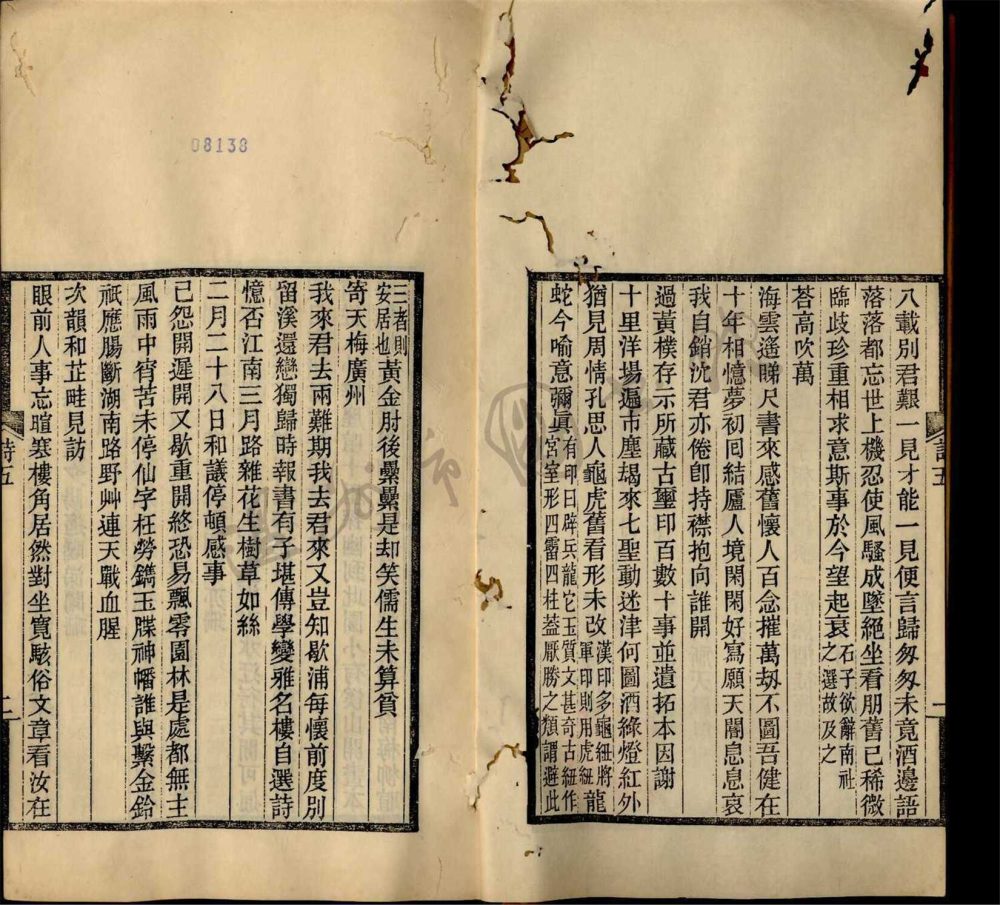 八載別君艱一見才能一見便言歸匆匆未竟酒邊語
落落都忘世上機忍使風騷成墜絕坐看朋舊已稀微
臨歧珍重相求意斯事於今望起衰石子欲辭南社之選故及之
荅高吹萬
海雲遙睇尺書來感舊懷人百念摧萬劫不圖吾健在
十年相憶夢初囘結廬人境閑閑好寫願天閽息息哀
我自銷沈君亦倦卽持襟抱向誰開
過黃樸存示所藏古璽印百數十事並遺拓本因謝
十里洋場遍市塵朅來七聖動迷津何圖酒綠燈紅外
猶見周情孔思人龜虎舊看形未改漢印多龜紐將軍印則用虎紐龍
蛇今喻意彌眞有印曰辟兵龍它玉質文甚奇古紐作宮室形四霤四柱葢厭勝之類謂避此
三者則安居也黃金肘後纍纍是却笑儒生未算貧
寄天梅廣州
我來君去兩難期我去君來又豈知歇浦每懷前度別
留溪還戀獨歸時報書有子堪傳學變雅名樓自選詩
憶否江南三月路雜花生樹草如絲
二月二十八日和議停頓感事
已怨開遲開又歇重開終恐易飄零園林是處都無主
風雨中宵苦未停仙字枉勞鐫玉牒神幡誰與繫金鈴
祇應腸斷湖南路野艸連天戰血腥
次韻和芷畦見訪
眼前人事忘暄寒樓角居然對坐寬駭俗文章看汝在
詩五
一
詩五
二
08138